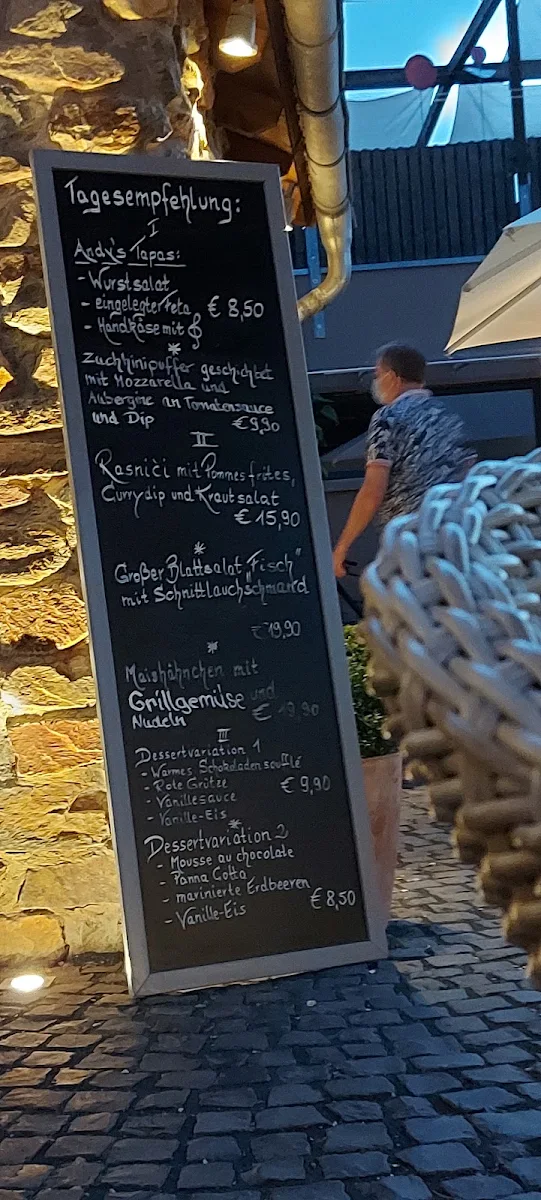 Tagesempfehlung:
I
Andy's Tapas:
- Wurstsalat
- eingelegter Feta € 8,50
- Handkäse mit 𝄞
*
Zuchhinipuffer geschichtet
mit Mozzarella und
Aubergine an Tomatensauce
und Dip
€ 9,90
II
Rasnići mit Pommes frites,
Currydip und Krautsalat
€ 15,90
*
Großer Blattsalat "Fisch"
mit Schnittlauchschmand
€ 19,90
*
Maishähnchen mit
Grillgemüse und
Nudeln € 19,90
III
Dessertvariation 1
- Warmes Schokoladensoufflé
- Rote Grütze € 9,90
- Vanillesauce
- Vanille-Eis
*
Dessertvariation 2
- Mousse au chocolate
- Panna Cotta
- marinierte Erdbeeren
- Vanille-Eis € 8,50